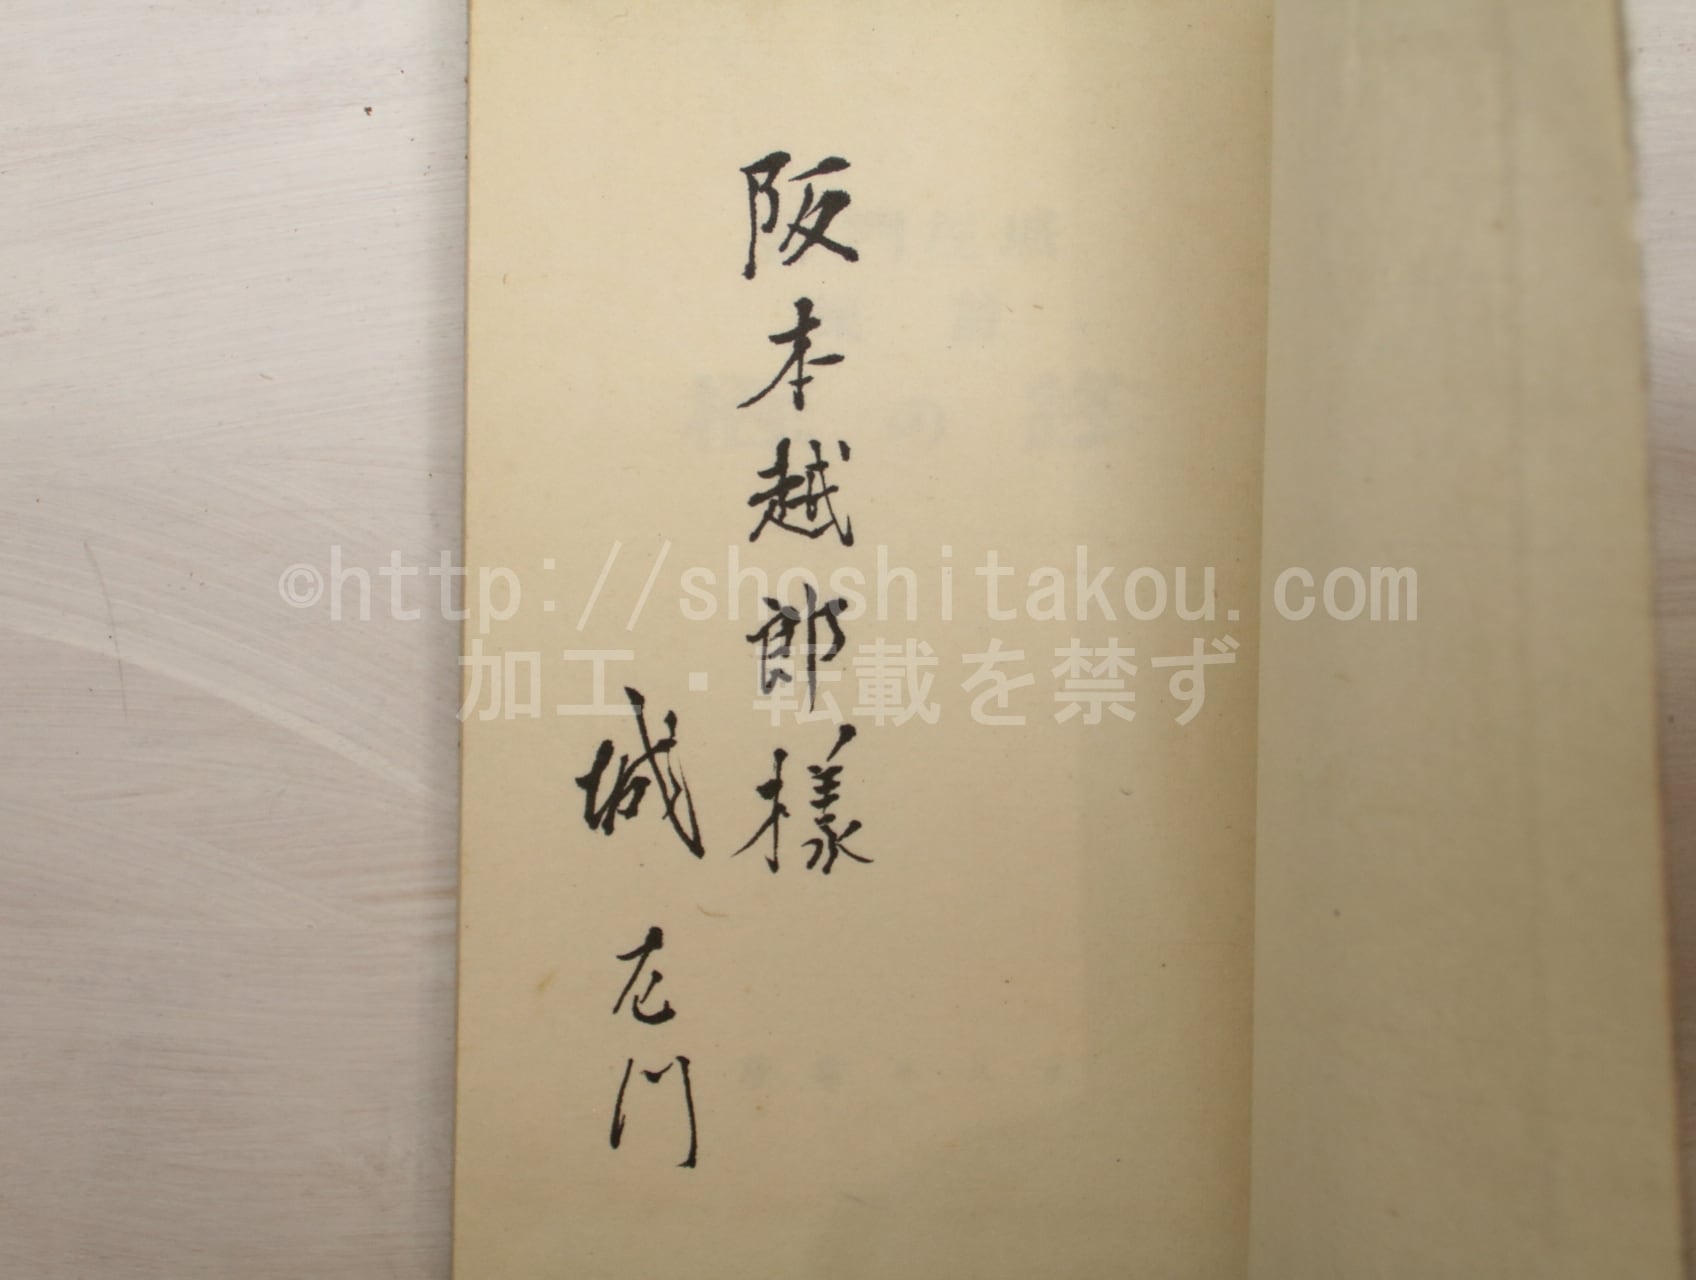 阪本越郎様
城左門
©http://shoshitakou.com
加工・転載を禁ず